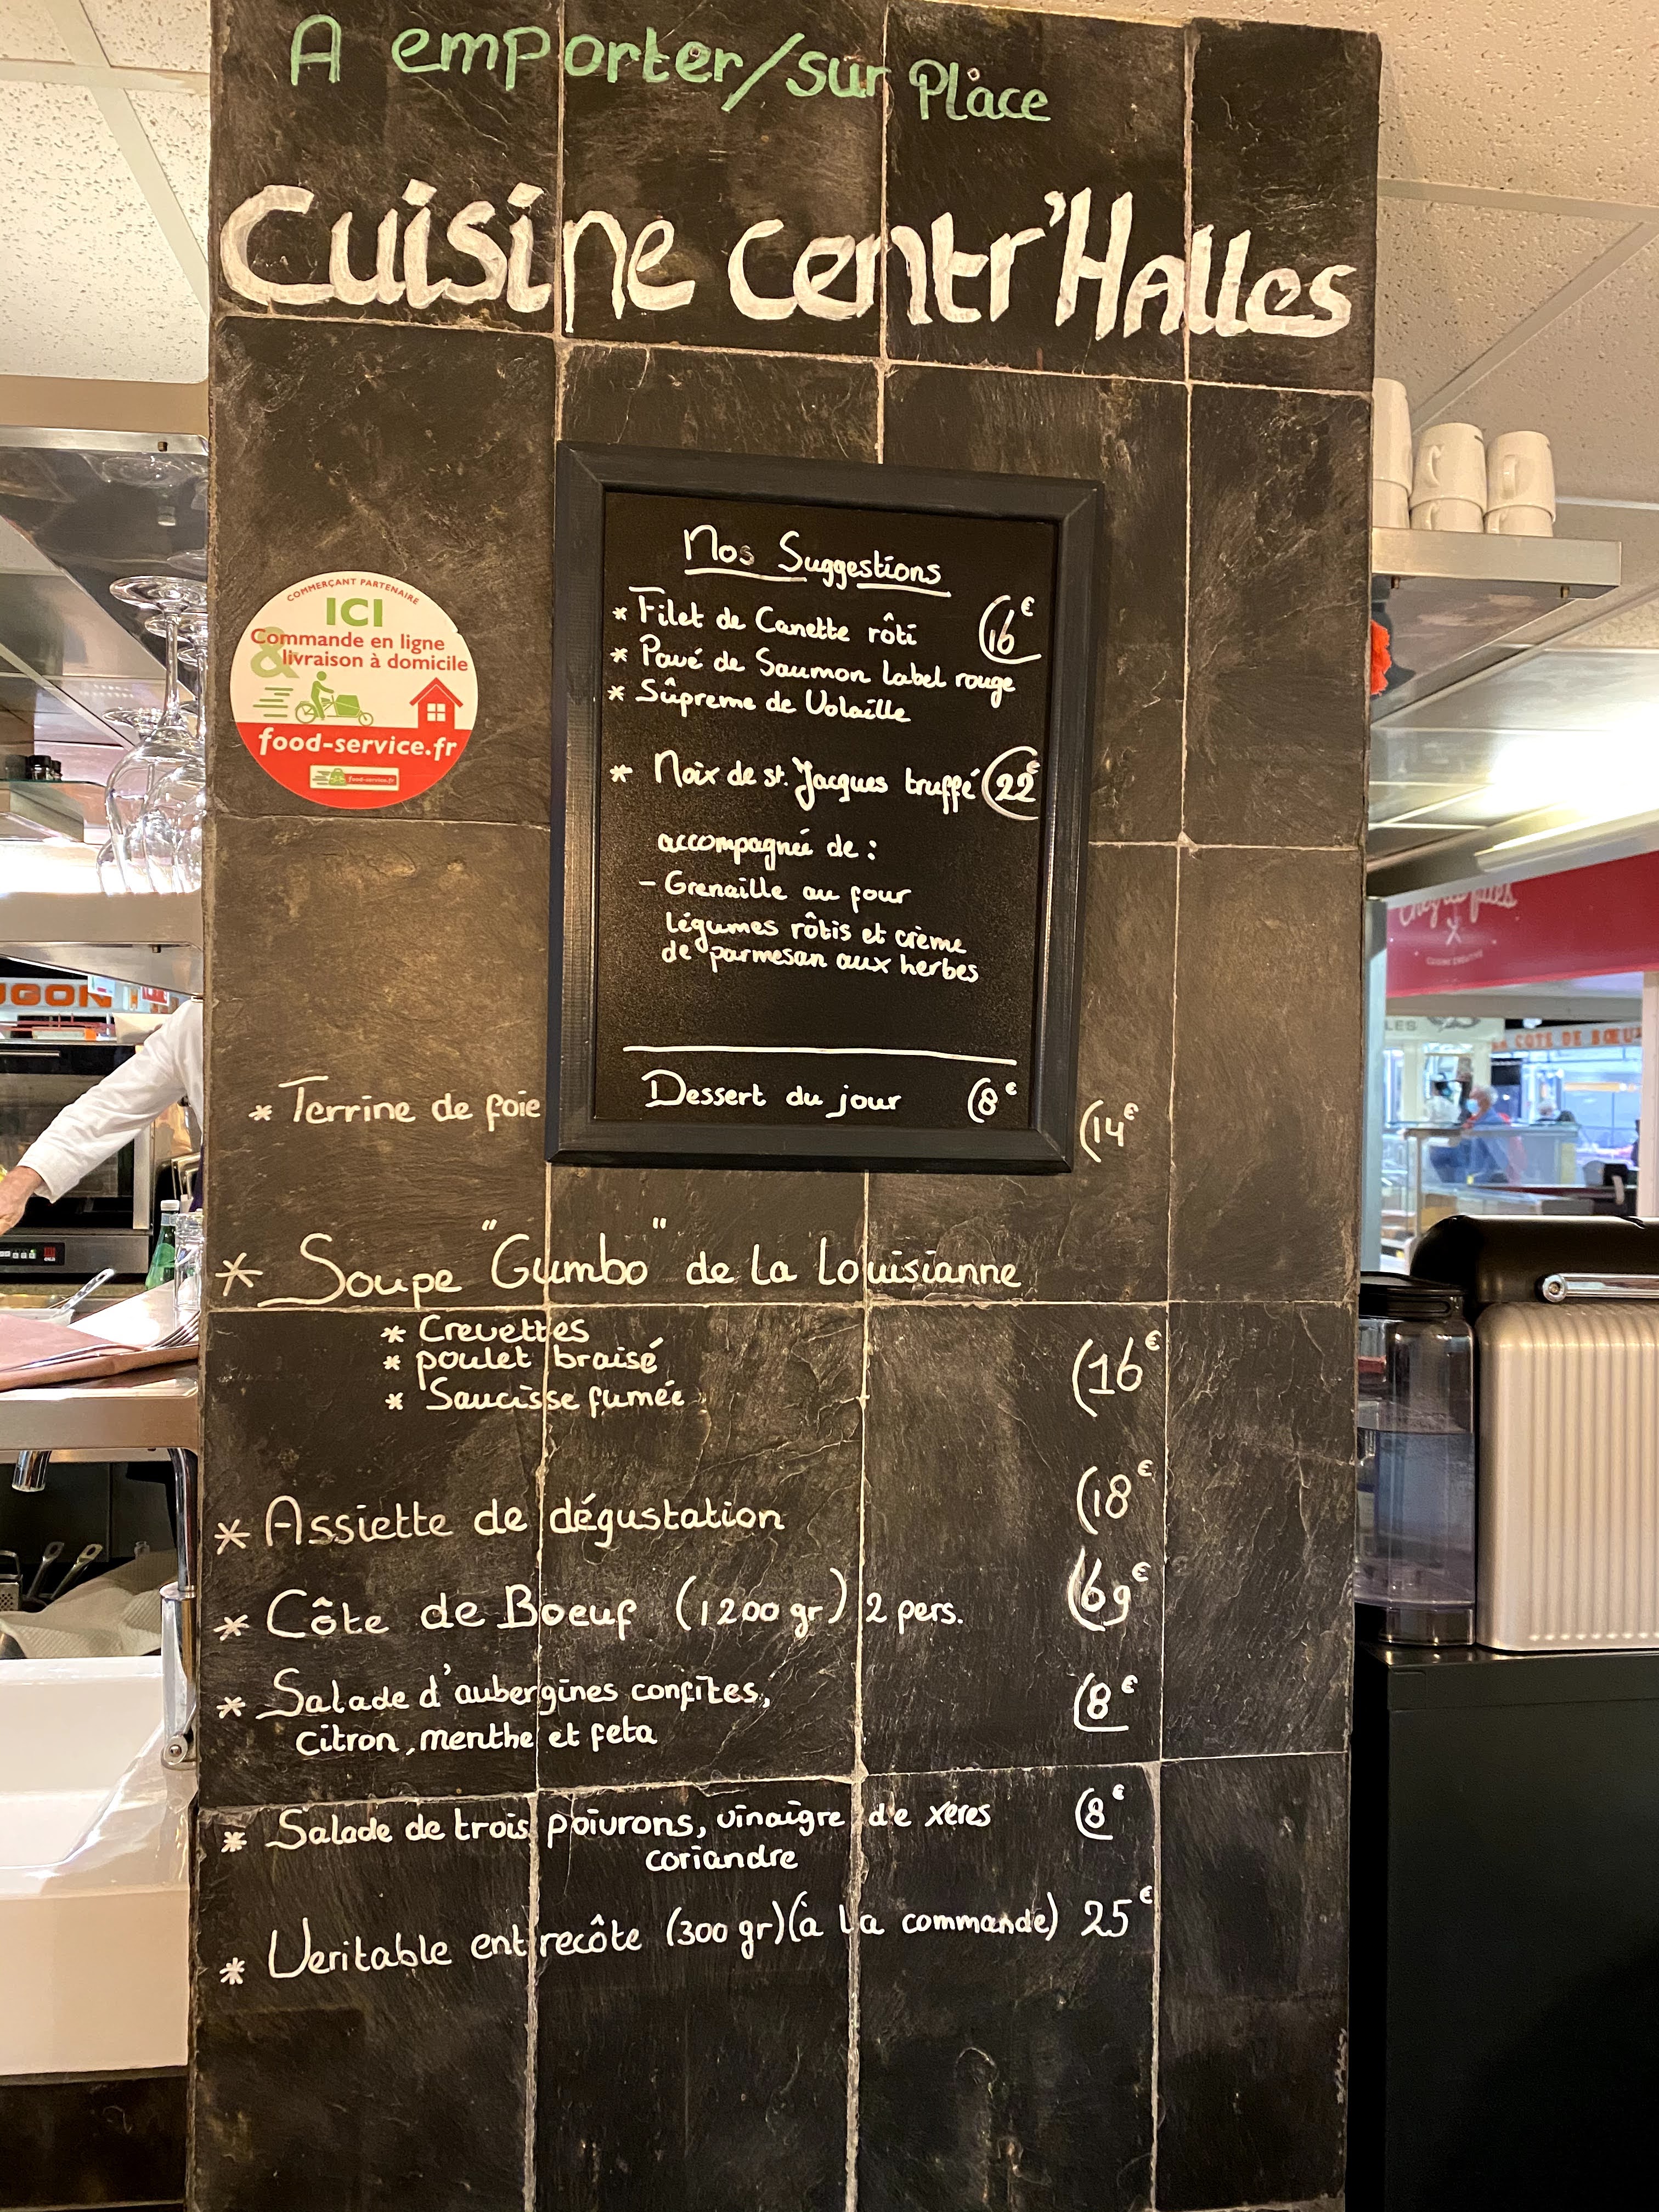 A emporter/sur Place
Cuisine Centr'Halles
COMMERÇANT PARTENAIRE
ICI
Commande en ligne
& livraison à domicile
food-service.fr
food-service.fr
Nos Suggestions
* Filet de Canette rôti (16€
* Pavé de Saumon Label rouge
* Sûpreme de Volaille
* Noix de st. Jacques truffé (22€
accompagnée de :
- Grenaille au four
légumes rôtis et crème
de parmesan aux herbes
Dessert du jour (8€
* Terrine de foie (14€
* Soupe "Gumbo" de La Louisianne
* Crevettes
* poulet braisé
* Saucisse fumée
(16€
* Assiette de dégustation (18€
* Côte de Boeuf (1200 gr) 2 pers. (69€
* Salade d'aubergines confites, (8€
citron, menthe et feta
* Salade de trois poivrons, vinaigre de xeres (8€
coriandre
* Veritable entrecôte (300 gr)(à la commande) 25€
UGON
Chez les filles
CUISINE CRÉATIVE
LES
LA COTE DE BŒU